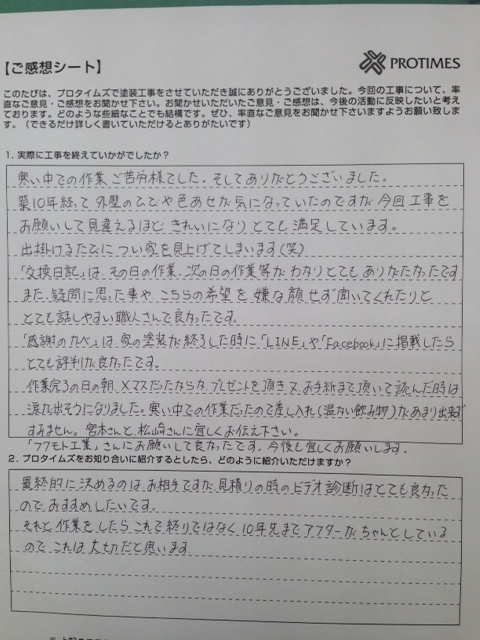 PROTIMES
【ご感想シート】
このたびは、プロタイムズで塗装工事をさせていただき誠にありがとうございました。今回の工事について、率
直なご意見・ご感想をお聞かせ下さい。お聞かせいただいたご意見・ご感想は、今後の活動に反映したいと考え
ております。どのような些細なことでも結構です。ぜひ、率直なご意見をお聞かせ下さいますようお願い致しま
す。（できるだけ詳しく書いていただけるとありがたいです）
1. 実際に工事を終えていかがでしたか？
寒い中での作業ご苦労様でした。そしてありがとうございました。
築10年経って外壁のひびや色あせが気になっていたのですが今回工事を
お願いして見違えるほどきれいになりとても満足しています。
出掛けるたびについ家を見上げてしまいます(笑)
「交換日記」は、その日の作業、次の日の作業等がわかりとてもありがたかったです
また、疑問に思った事やこちらの希望を嫌な顔せず聞いてくれたりと
とても話しやすい職人さんで良かったです。
「感謝のカベ」は、家の塗装が終了した時に「LINE」や「Facebook」に掲載したら
とても評判が良かったです。
作業完了の日の朝、Xマスだったからか、プレゼントを頂き又、お手紙まで頂いて読んだ時は
涙が出そうになりました。寒い中での作業だったので差し入れ(温かい飲み物)があまり出来ず
すみません。宮木さんと、松崎さんに宜しくお伝え下さい。
「フクモト工業」さんにお願いして良かったです。今後も宜しくお願いします。
2. プロタイムズをお知り合いに紹介するとしたら、どのように紹介いただけますか？
最終的に決めるのは、お相手ですが見積りの時のビデオ診断はとても良かった
のでおすすめしたいです。
それと作業をしたらこれで終りではなく10年先までアフターがちゃんとしている
のでこれは大切だと思います